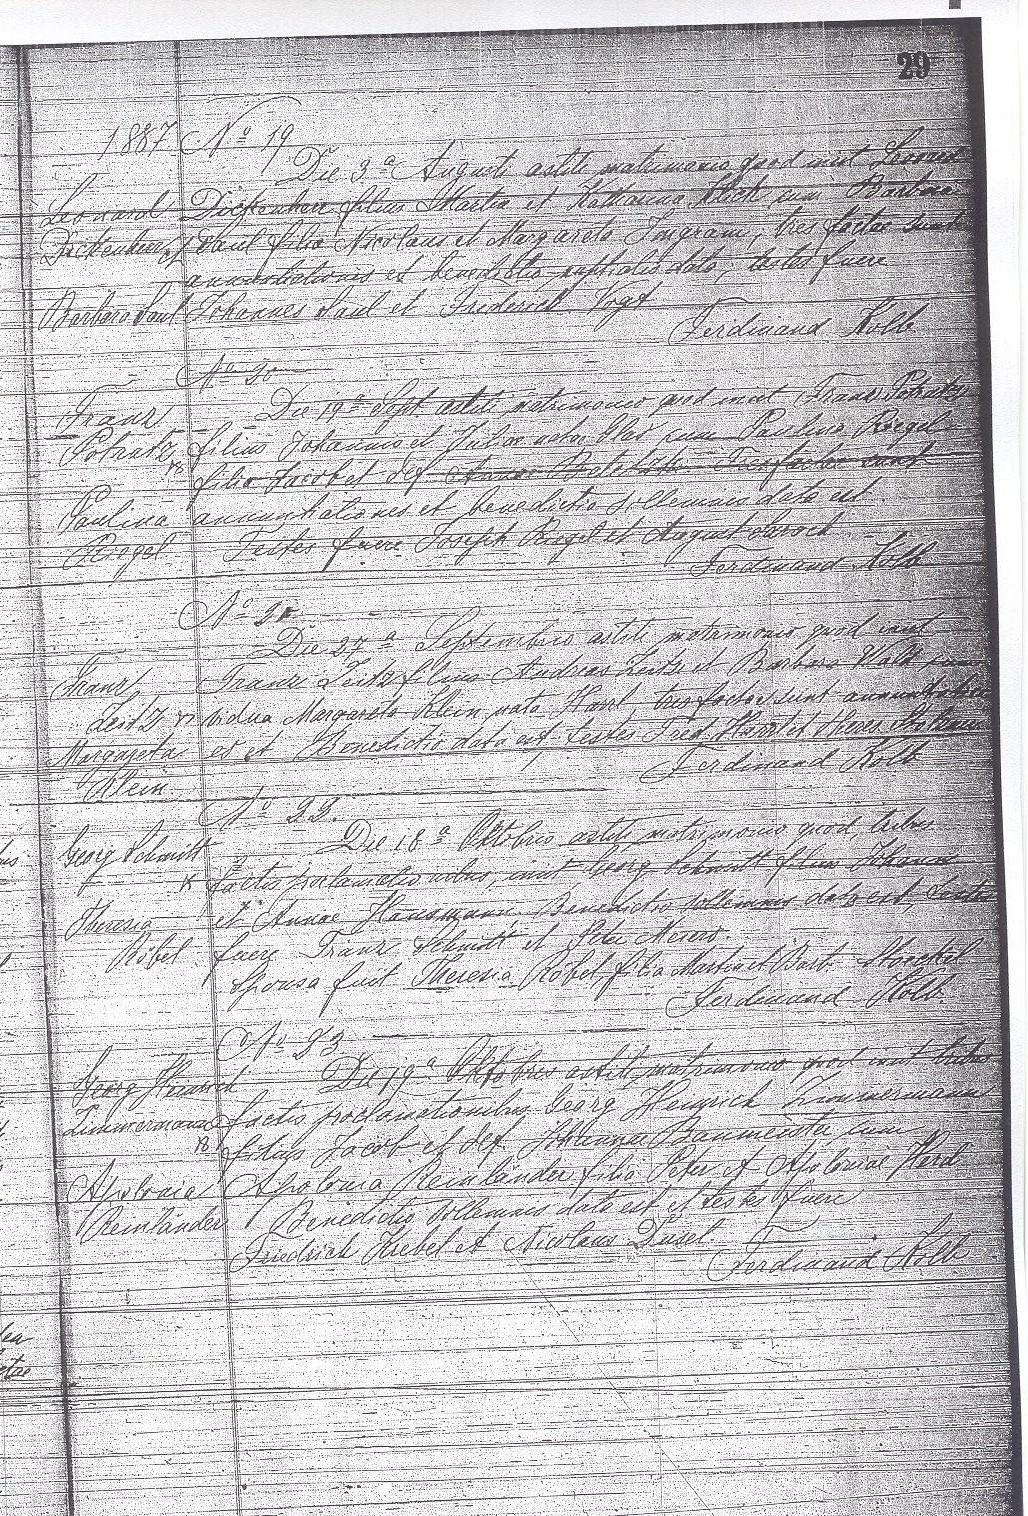 29
1887 No 19
Die 3a Augusti astiti matrimonio quod iniit Leonard
Leonard Dickenherr filius Martin et Katharina Klick cum Barbara
Dickenherr et Saul filia Nicolaus et Margareta Ingram, tres factae sunt
annuntiationes et benedictio nuptialis data, testes fuere
Barbara Saul Johannes Saul et Frederich Vogt
Ferdinand Kolb
No 20
Franz Die 19a Sept. astiti matrimonio quod iniit Franz Potratz
Potratz filius Johannis et Juliae natae cum Paulina Riegel
filia Jacob et def. Annae Tres factae sunt
Paulina annuntiationes et benedictio sollemnis data est
Riegel Testes fuere Joseph Riegel et August
Ferdinand Kolb
No
Die 27a Septembris astiti matrimonio quod iniit
Franz Franz Zeitz filius Andreas Zeitz et Barbara Wald cum
Zeitz vidua Margareta Klein nata Harst tres factae sunt annuntiation
Margareta es et Benedictio data est, testes Fred Harst et
Klein. Ferdinand Kolb
No 22.
Georg Schmitt Die 18a Oktobris astiti matrimonio, quod tribus
factis proclamationibus, iniit Georg Schmitt filius Johannis
Theresia et Annae Hansmann, Benedictio sollemnis data est, testes
Röbel fuere Franz Schmitt et Peter
Sponsa fuit Theresia Röbel filia Martin et Barb. Stoeckel
Ferdinand Kolb
No 23
Georg Heinrich Die 19a Oktobris astiti matrimonio quod iniit tribus
Zimmermann factis proclamationibus Georg Heinrich Zimmermann
filius Jacob et def. Johanna Baumeister cum
Apolonia Apolonia Reinländer filia Peter et Apoloniae Hard
Reinländer Benedictio sollemnis data est et testes fuere
Friedrich Hrebel et Nicolaus Dusel
Ferdinand Kolb